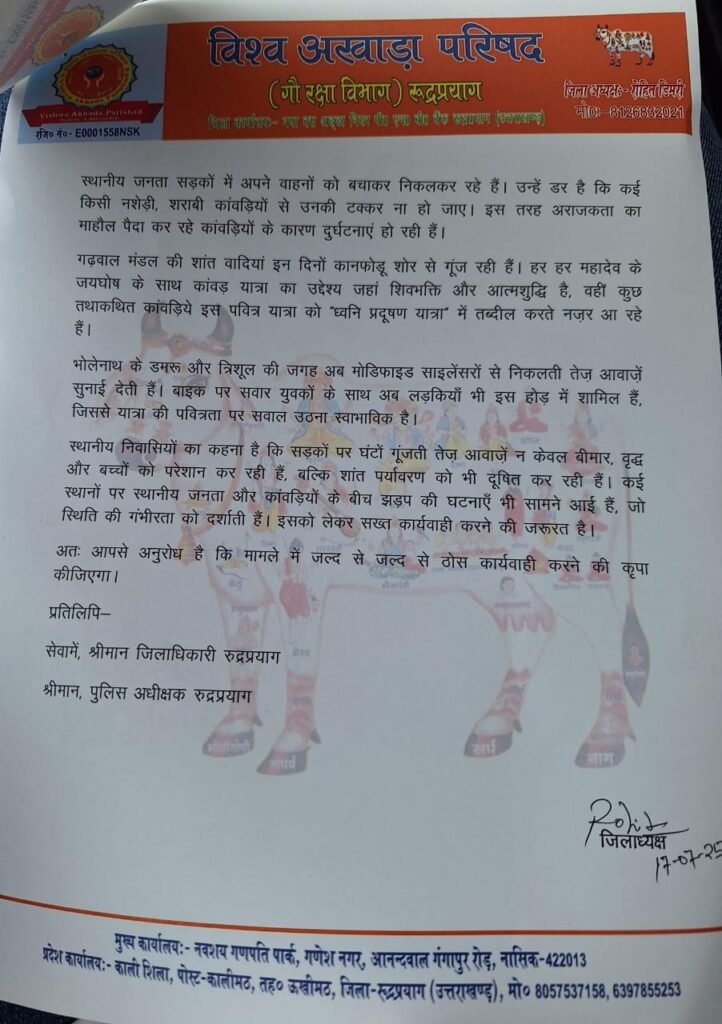 विश्व अखाड़ा परिषद
(गौ रक्षा विभाग) रूद्रप्रयाग
जिला कार्यालय:- नया बस अड्डा नियर पी० एन० बी० बैंक रूद्रप्रयाग (उत्तराखण्ड)
जिला अध्यक्ष:- रोहित डिमरी
मो०:- 8126882021
Vishwa Akhada Parishad
रजि० नं०- E0001558NSK
स्थानीय जनता सड़कों में अपने वाहनों को बचाकर निकलकर रहे हैं। उन्हें डर है कि कई
किसी नशेड़ी, शराबी कांवड़ियों से उनकी टक्कर ना हो जाए। इस तरह अराजकता का
माहौल पैदा कर रहे कांवड़ियों के कारण दुर्घटनाएं हो रही हैं।
गढ़वाल मंडल की शांत वादियां इन दिनों कानफोडू शोर से गूंज रही हैं। हर हर महादेव के
जयघोष के साथ कांवड़ यात्रा का उद्देश्य जहां शिवभक्ति और आत्मशुद्धि है, वहीं कुछ
तथाकथित कांवड़िये इस पवित्र यात्रा को "ध्वनि प्रदूषण यात्रा" में तब्दील करते नज़र आ रहे
हैं।
भोलेनाथ के डमरू और त्रिशूल की जगह अब मोडिफाइड साइलेंसरों से निकलती तेज़ आवाज़ें
सुनाई देती हैं। बाइक पर सवार युवकों के साथ अब लड़कियाँ भी इस होड़ में शामिल हैं,
जिससे यात्रा की पवित्रता पर सवाल उठना स्वाभाविक है।
स्थानीय निवासियों का कहना है कि सड़कों पर घंटों गूंजती तेज़ आवाज़ें न केवल बीमार, वृद्ध
और बच्चों को परेशान कर रही हैं, बल्कि शांत पर्यावरण को भी दूषित कर रही हैं। कई
स्थानों पर स्थानीय जनता और कांवड़ियों के बीच झड़प की घटनाएँ भी सामने आई हैं, जो
स्थिति की गंभीरता को दर्शाती हैं। इसको लेकर सख्त कार्यवाही करने की जरूरत है।
अतः आपसे अनुरोध है कि मामले में जल्द से जल्द से ठोस कार्यवाही करने की कृपा
कीजिएगा।
प्रतिलिपि–
सेवामें, श्रीमान जिलाधिकारी रुद्रप्रयाग
श्रीमान, पुलिस अधीक्षक रुद्रप्रयाग
सर्प
नाग
Rohit
जिलाध्यक्ष
17-07-25
मुख्य कार्यालय:- नवशय गणपति पार्क, गणेश नगर, आनन्दवाल गंगापुर रोड़, नासिक-422013
प्रदेश कार्यालय:- काली शिला, पोस्ट-कालीमठ, तह० ऊखीमठ, जिला-रूद्रप्रयाग (उत्तराखण्ड), मो० 8057537158, 6397855253